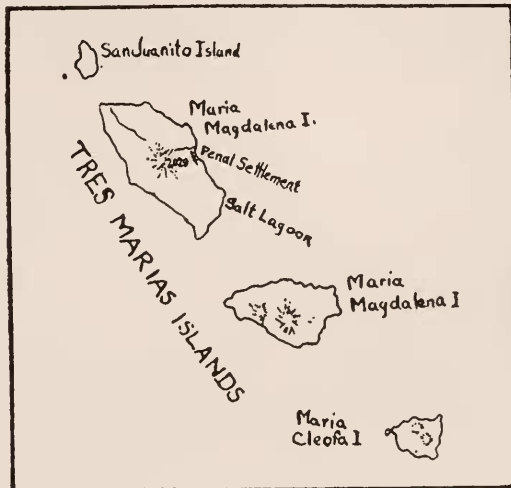 San Juanito Island
Maria
Magdalena I.
2020
Penal Settlement
Salt Lagoon
TRES MARIAS ISLANDS
Maria
Magdalena I
Maria
Cleofa I